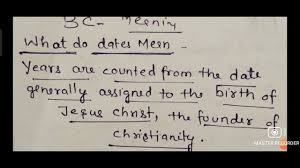 BC- Meaning
What do dates Mean -
Years are counted from the date
generally assigned to the birth of
Jesus Christ, the founder of
christianity.
MASTER RECORDER